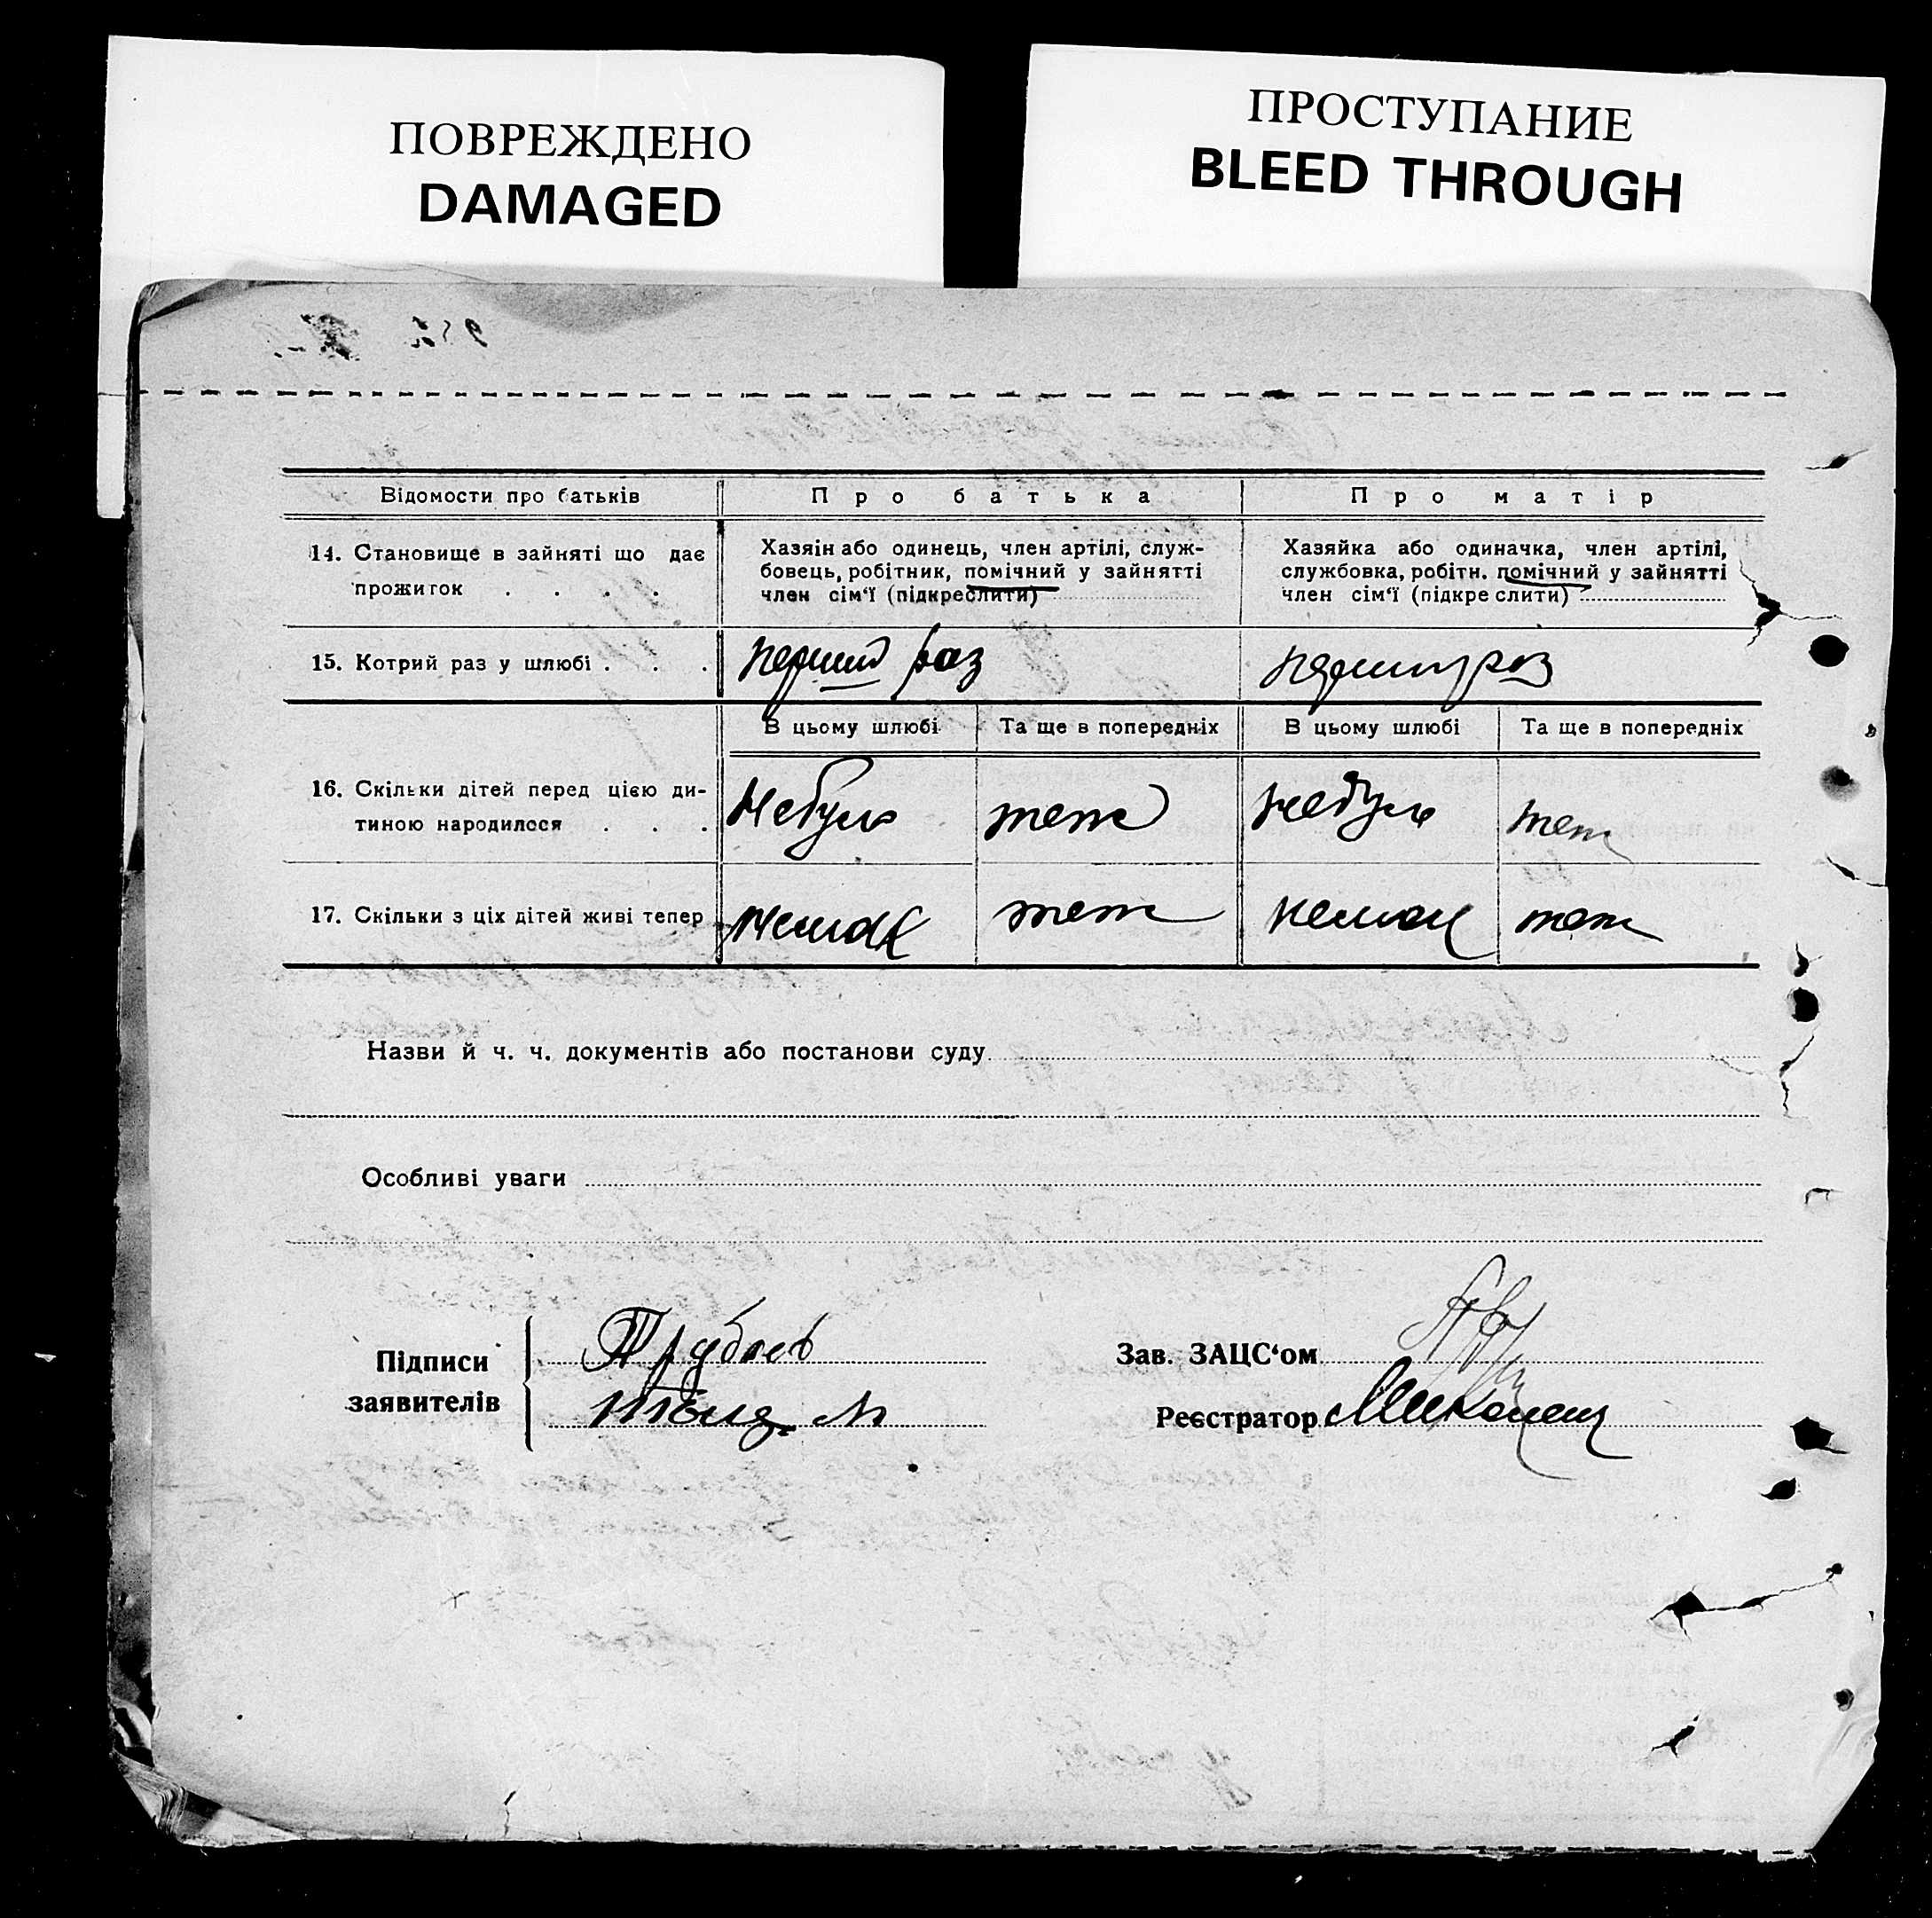 ПОВРЕЖДЕНО
DAMAGED
ПРОСТУПАНИЕ
BLEED THROUGH
Відомости про батьків
Про батька
Про матір
14. Становище в зайняті що дає
прожиток . . . .
Хазяін або одинець, член артілі, служ-
бовець, робітник, помічний у зайнятті
член сім'ї (підкреслити)
Хазяйка або одиначка, член артілі,
службовка, робітн. помічний у зайнятті
член сім'ї (підкреслити)
15. Котрий раз у шлюбі . . .
перший раз
перший раз
В цьому шлюбі
Та ще в попередніх
В цьому шлюбі
Та ще в попередніх
16. Скільки дітей перед цією ди-
тиною народилося . . .
Небуло
теж
небуло
теж
17. Скільки з ціх дітей живі тепер
немає
теж
немає
теж
Назви й ч. ч. документів або постанови суду
Особливі уваги
Підписи
заявителів
Зав. ЗАЦС'ом
Реєстратор